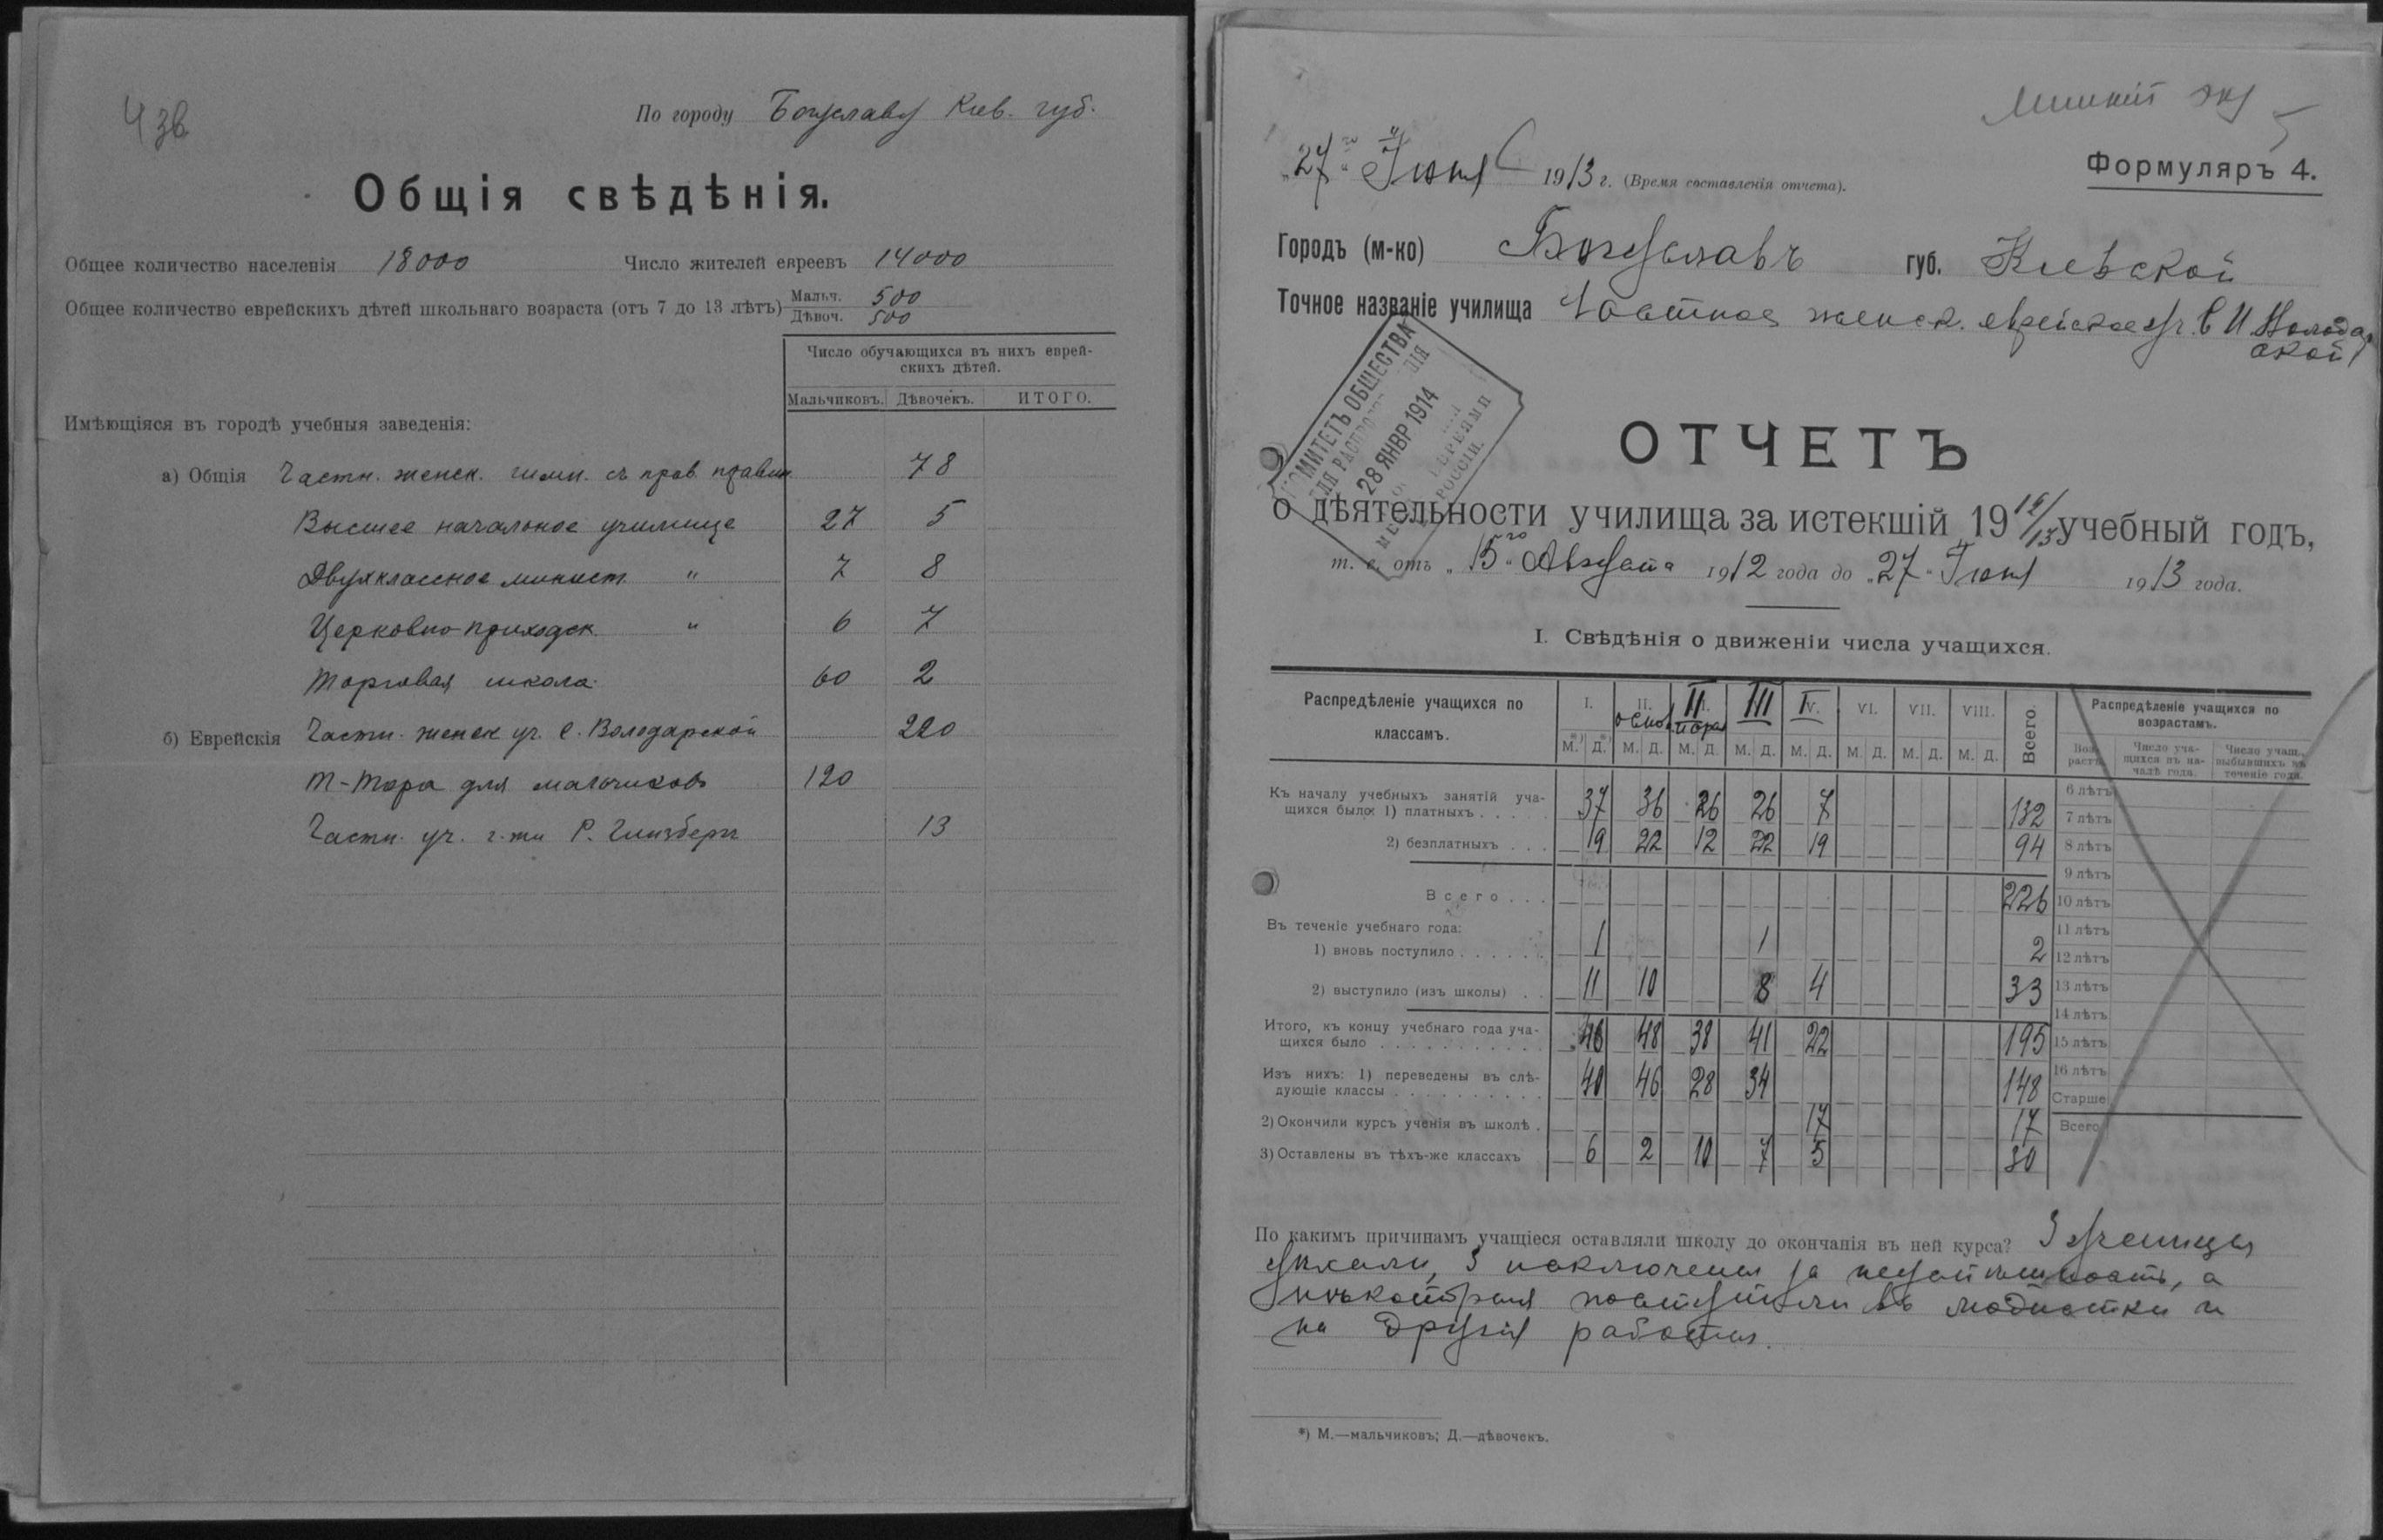 43в
По городу Богуславу Киев. губ.
Общія свѣдѣнія.
Общее количество населенія 18000 Число жителей евреевъ 14000
Общее количество еврейскихъ дѣтей школьнаго возраста (отъ 7 до 13 лѣтъ) Мальч. 500
Дѣвоч. 500
Число обучающихся въ нихъ еврей-
скихъ дѣтей.
Мальчиковъ. Дѣвочекъ. ИТОГО.
Имѣющіяся въ городѣ учебныя заведенія:
а) Общія Частн. женск. гимн. съ прав. правит. 78
Высшее начальное училище 27 5
Двухклассное минист. " 7 8
Церковно-приходск. " 6 7
Торговая школа 60 2
б) Еврейскія Частн. женск уч. С. Володарской 220
Т-Тора для мальчиковъ 120
Частн. уч. г-жи Р. Гинзбергъ 13
"27го" Іюня 1913 г. (Время составленія отчета).
Формуляръ 4.
Городъ (м-ко) Богуславъ губ. Кіевской
Точное названіе училища Частное женск. еврейское уч. С И Володар
ской
КОМИТЕТЪ ОБЩЕСТВА
ДЛЯ РАСПРО
28 ЯНВР 1914
ЕВРЕЯМИ
РОССІИ.
ОТЧЕТЪ
о дѣятельности училища за истекшій 1912/13 учебный годъ,
т. е. отъ "15го" Августа 1912 года до "27" Іюня 1913 года.
I. Свѣдѣнія о движеніи числа учащихся.
Распредѣленіе учащихся по классамъ. I. II. основ II III IV. VI. VII. VIII. Всего. Распредѣленіе учащихся по возрастамъ.
М.*) Д.*) М. Д. М. Д. М. Д. М. Д. М. Д. М. Д. М. Д. Воз-растъ. Число уча-щихся въ на-чалѣ года. Число учащ., выбывшихъ въ теченіе года.
Къ началу учебныхъ занятій уча-
щихся было: 1) платныхъ . . . . . 37 36 26 26 7 132
2) безплатныхъ . . . 19 22 12 22 19 94
Всего . . . 226
Въ теченіе учебнаго года:
1) вновь поступило . . . . . . 1 1 2
2) выступило (изъ школы) . . 11 10 8 4 33
Итого, къ концу учебнаго года уча-
щихся было . . . . . . . . . . . 46 48 38 41 22 195
Изъ нихъ: 1) переведены въ слѣ-
дующіе классы . . . . . . . . . . 40 46 28 34 148
2) Окончили курсъ ученія въ школѣ . 17 17
3) Оставлены въ тѣхъ-же классахъ 6 2 10 7 5 30
6 лѣтъ
7 лѣтъ
8 лѣтъ
9 лѣтъ
10 лѣтъ
11 лѣтъ
12 лѣтъ
13 лѣтъ
14 лѣтъ
15 лѣтъ
16 лѣтъ
Старше
Всего
По какимъ причинамъ учащіеся оставляли школу до окончанія въ ней курса? 3 ученицы
уѣхали, 3 исключены за неуспѣшность, а
нѣкоторыя поступили въ модистки и
на другія работы.
*) М.—мальчиковъ; Д.—дѣвочекъ.